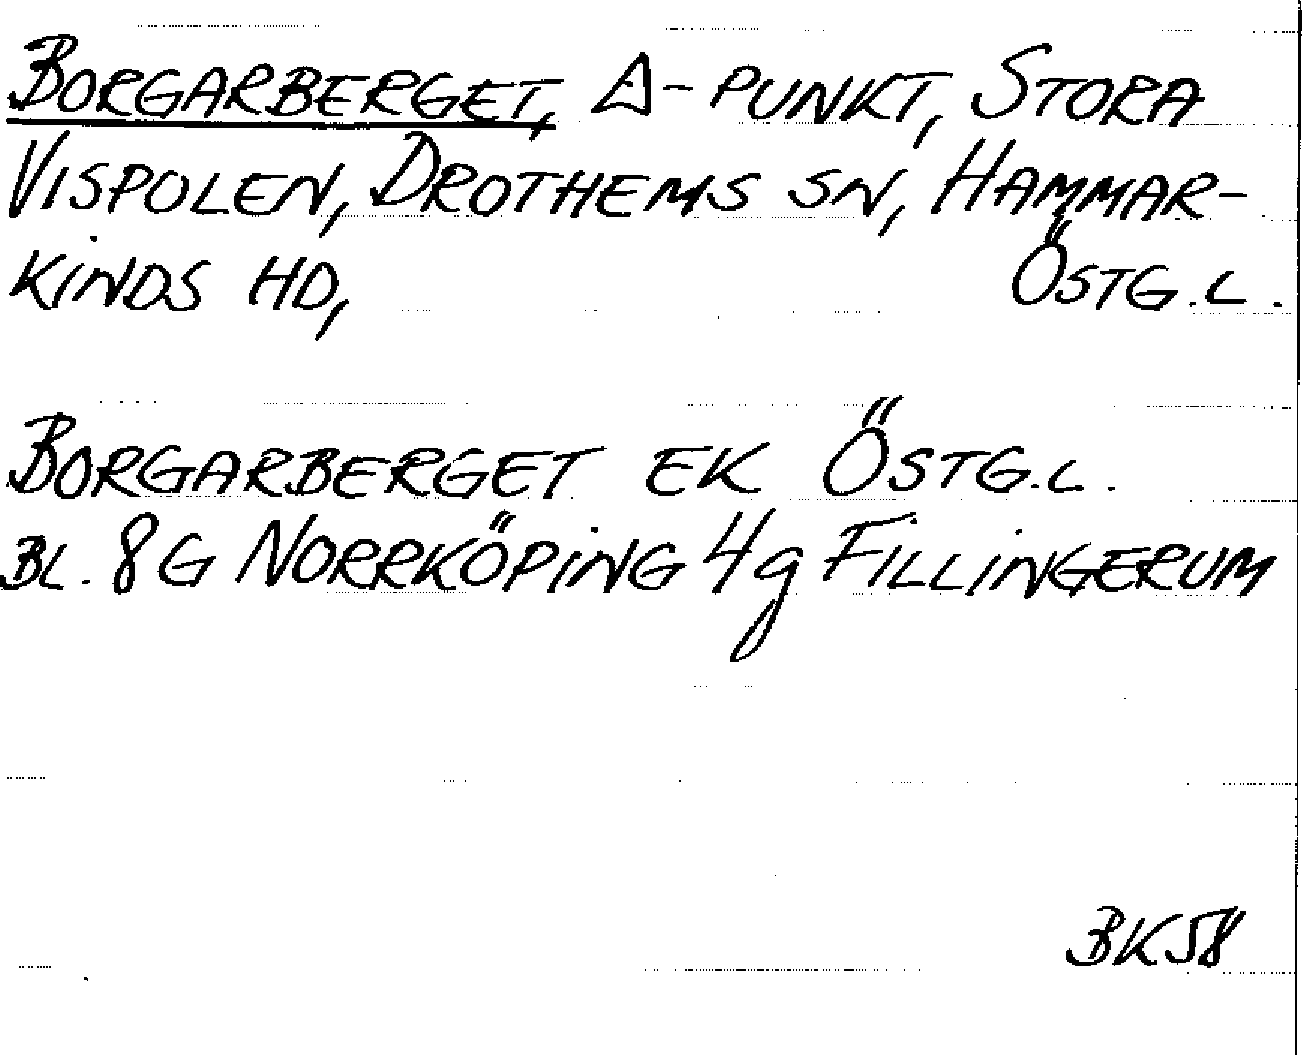 BORGARBERGET, △-PUNKT, STORA
VISPOLEN, DROTHEMS SN, HAMMAR-
KINDS HD, ÖSTG.L.
BORGARBERGET EK ÖSTG.L.
BL. 8G NORRKÖPING 4g FILLINGERUM
BK58